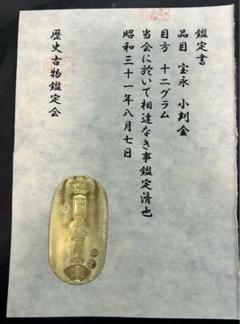 鑑定書
品目 宝永 小判金
目方 十二グラム
当会に於いて相違なき事鑑定済也
昭和三十一年八月七日
歴史古物鑑定会